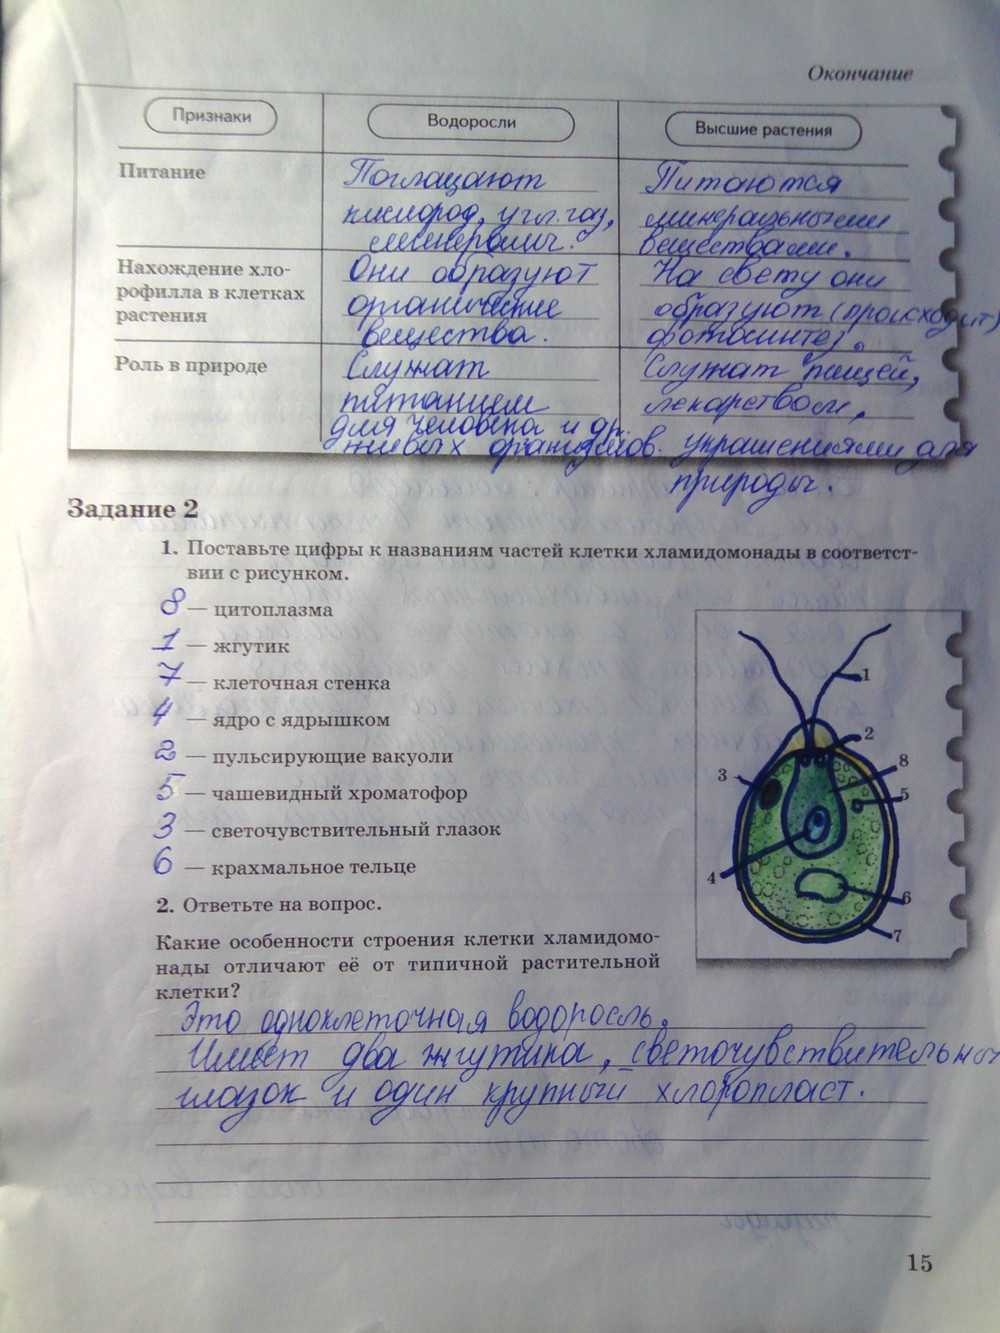 Окончание
Признаки
Водоросли
Высшие растения
Питание
Поглащают
кислород, угл. газ,
минералы.
Питаются
минеральными
веществами.
Нахождение хло-
рофилла в клетках
растения
Они образуют
органические
вещества.
На свету они
образуют (происходит)
фотосинтез.
Роль в природе
Служат
питанием
для человека и др.
живых организмов.
Служат пищей,
лекарством,
украшениями для
природы.
Задание 2
1. Поставьте цифры к названиям частей клетки хламидомонады в соответст-
вии с рисунком.
8 — цитоплазма
1 — жгутик
7 — клеточная стенка
4 — ядро с ядрышком
2 — пульсирующие вакуоли
5 — чашевидный хроматофор
3 — светочувствительный глазок
6 — крахмальное тельце
1
2
8
3
5
4
6
7
2. Ответьте на вопрос.
Какие особенности строения клетки хламидомо-
нады отличают её от типичной растительной
клетки?
Это одноклеточная водоросль.
Имеет два жгутика, светочувствительный
глазок и один крупный хлоропласт.
15